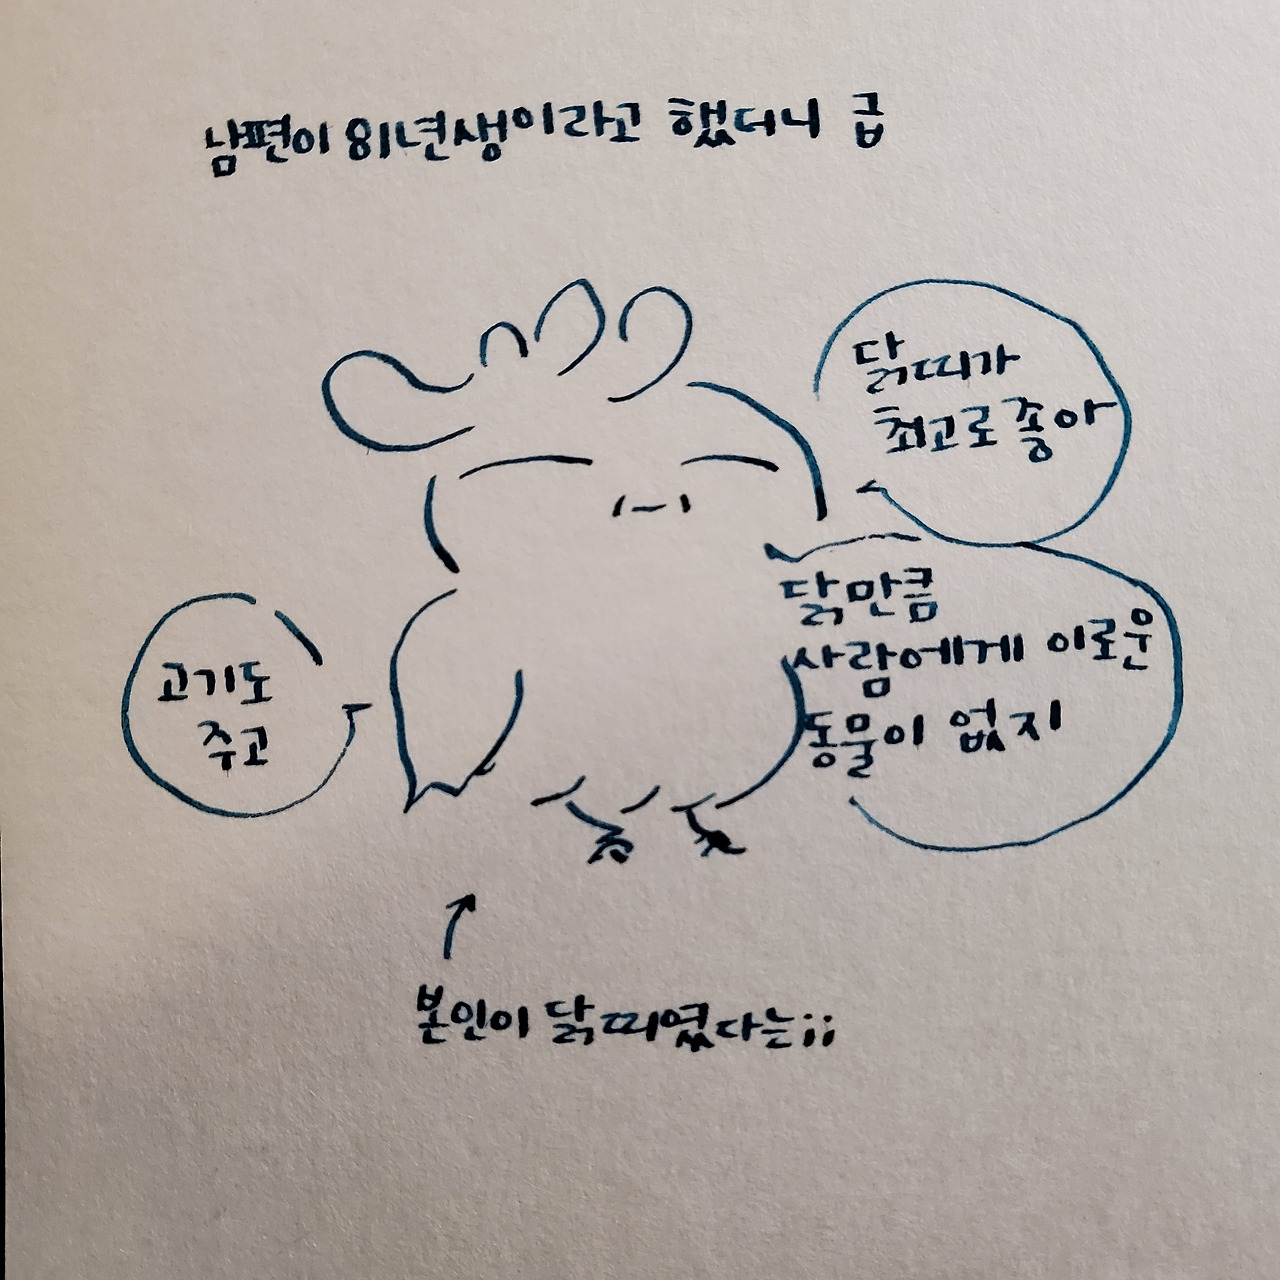 남편이 81년생이라고 했더니 급
닭띠가
최고로 좋아
닭만큼
사람에게 이로운
동물이 없지
고기도
주고
본인이 닭띠였다는;;